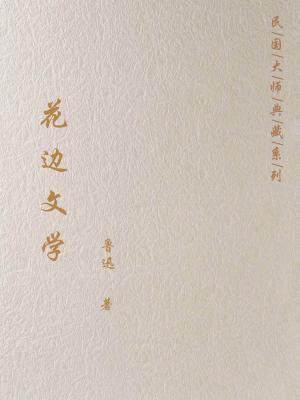 民国大师典藏系列
花边文学
鲁迅 著